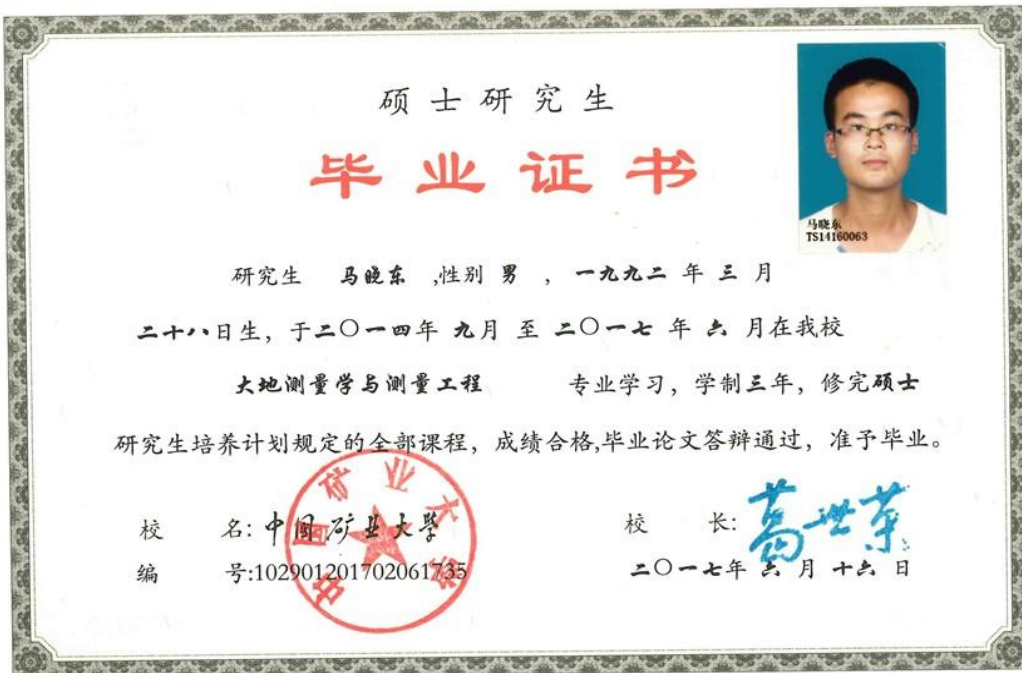 硕士研究生
毕业证书
马晓东
TS14160063
研究生 马晓东 ,性别 男 , 一九九二 年 三 月
二十八日生, 于二〇一四年 九月 至 二〇一七 年 六 月在我校
大地测量学与测量工程 专业学习, 学制三年, 修完硕士
研究生培养计划规定的全部课程, 成绩合格,毕业论文答辩通过, 准予毕业。
校 名:中国矿业大学
校 长:葛世荣
编 号:102901201702061735
二〇一七年 六 月 十六 日
中国矿业大学